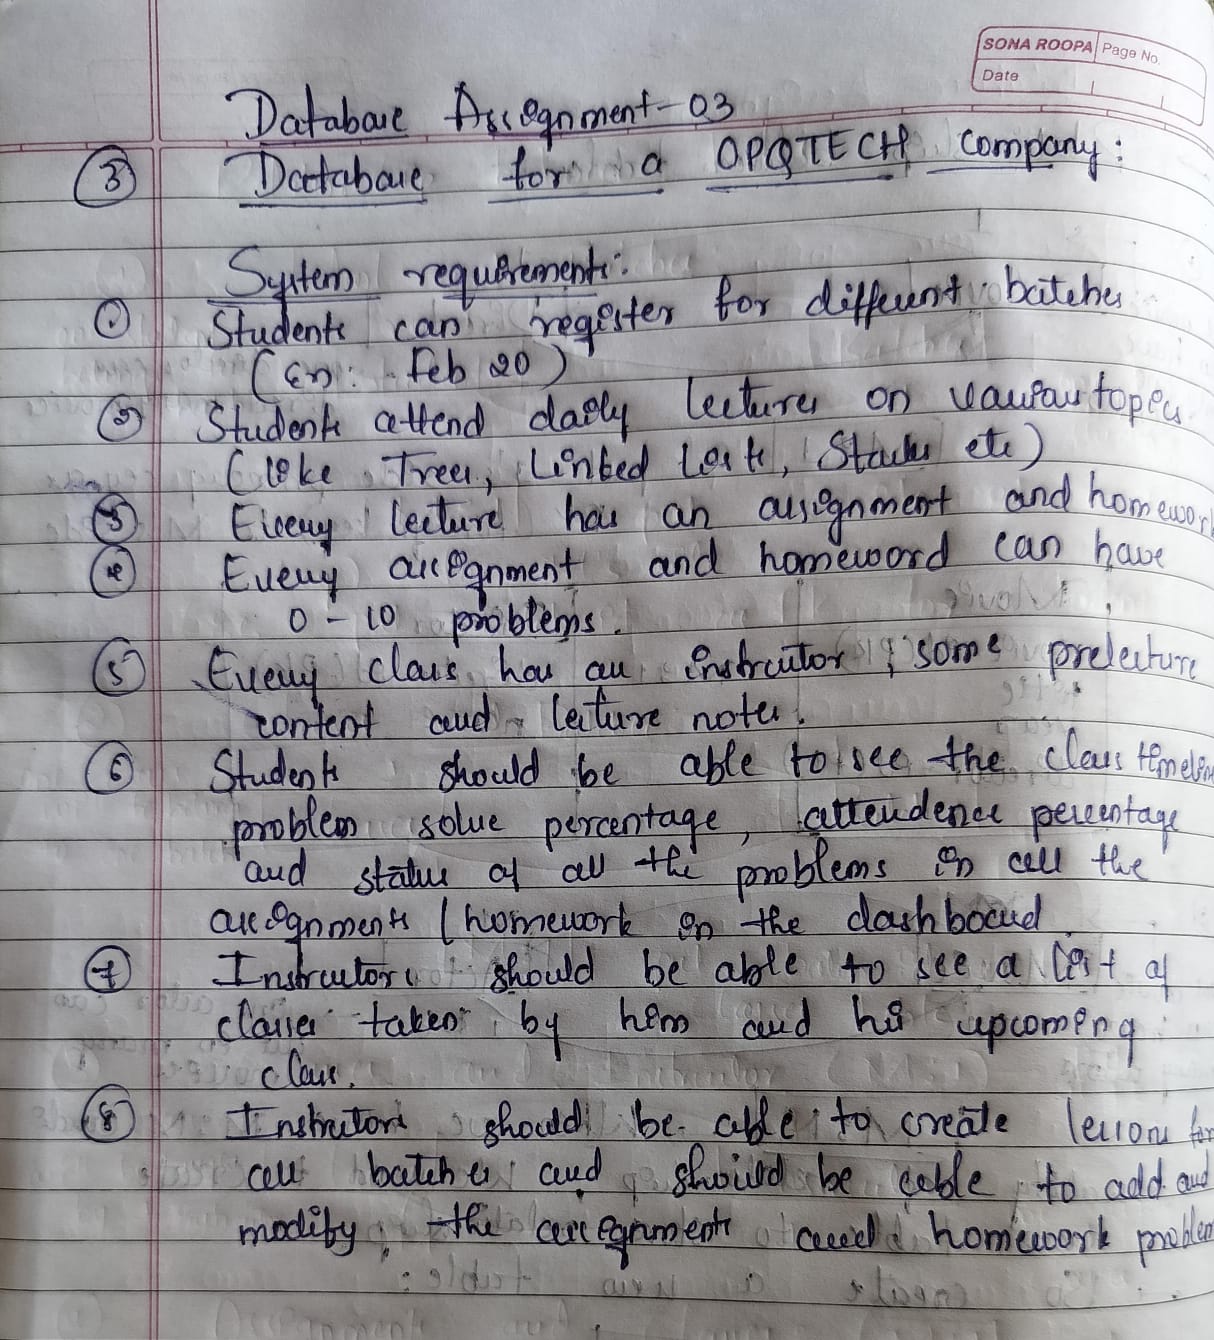 SONA ROOPA Page No.
Date
Database Assignment-03
③ Database for a OPQTECH company:
System requirements:
① Students can register for different batches
(En: Feb 20)
② Students attend daily lectures on various topics
(like Trees, Linked Lists, Stacks etc)
③ Every lecture has an assignment and homework
④ Every assignment and homeword can have
0 - 10 problems.
⑤ Every class has an instructor, some prelecture
content and lecture notes.
⑥ Students should be able to see the class timeline
problem solve percentage, attendence percentage
and status of all the problems in all the
assignments / homework on the dashboard
⑦ Instructors should be able to see a list of
classes taken by him and his upcoming
class.
⑧ Instructors should be able to create lessons for
all batches and should be able to add and
modify the assignments and homework problem